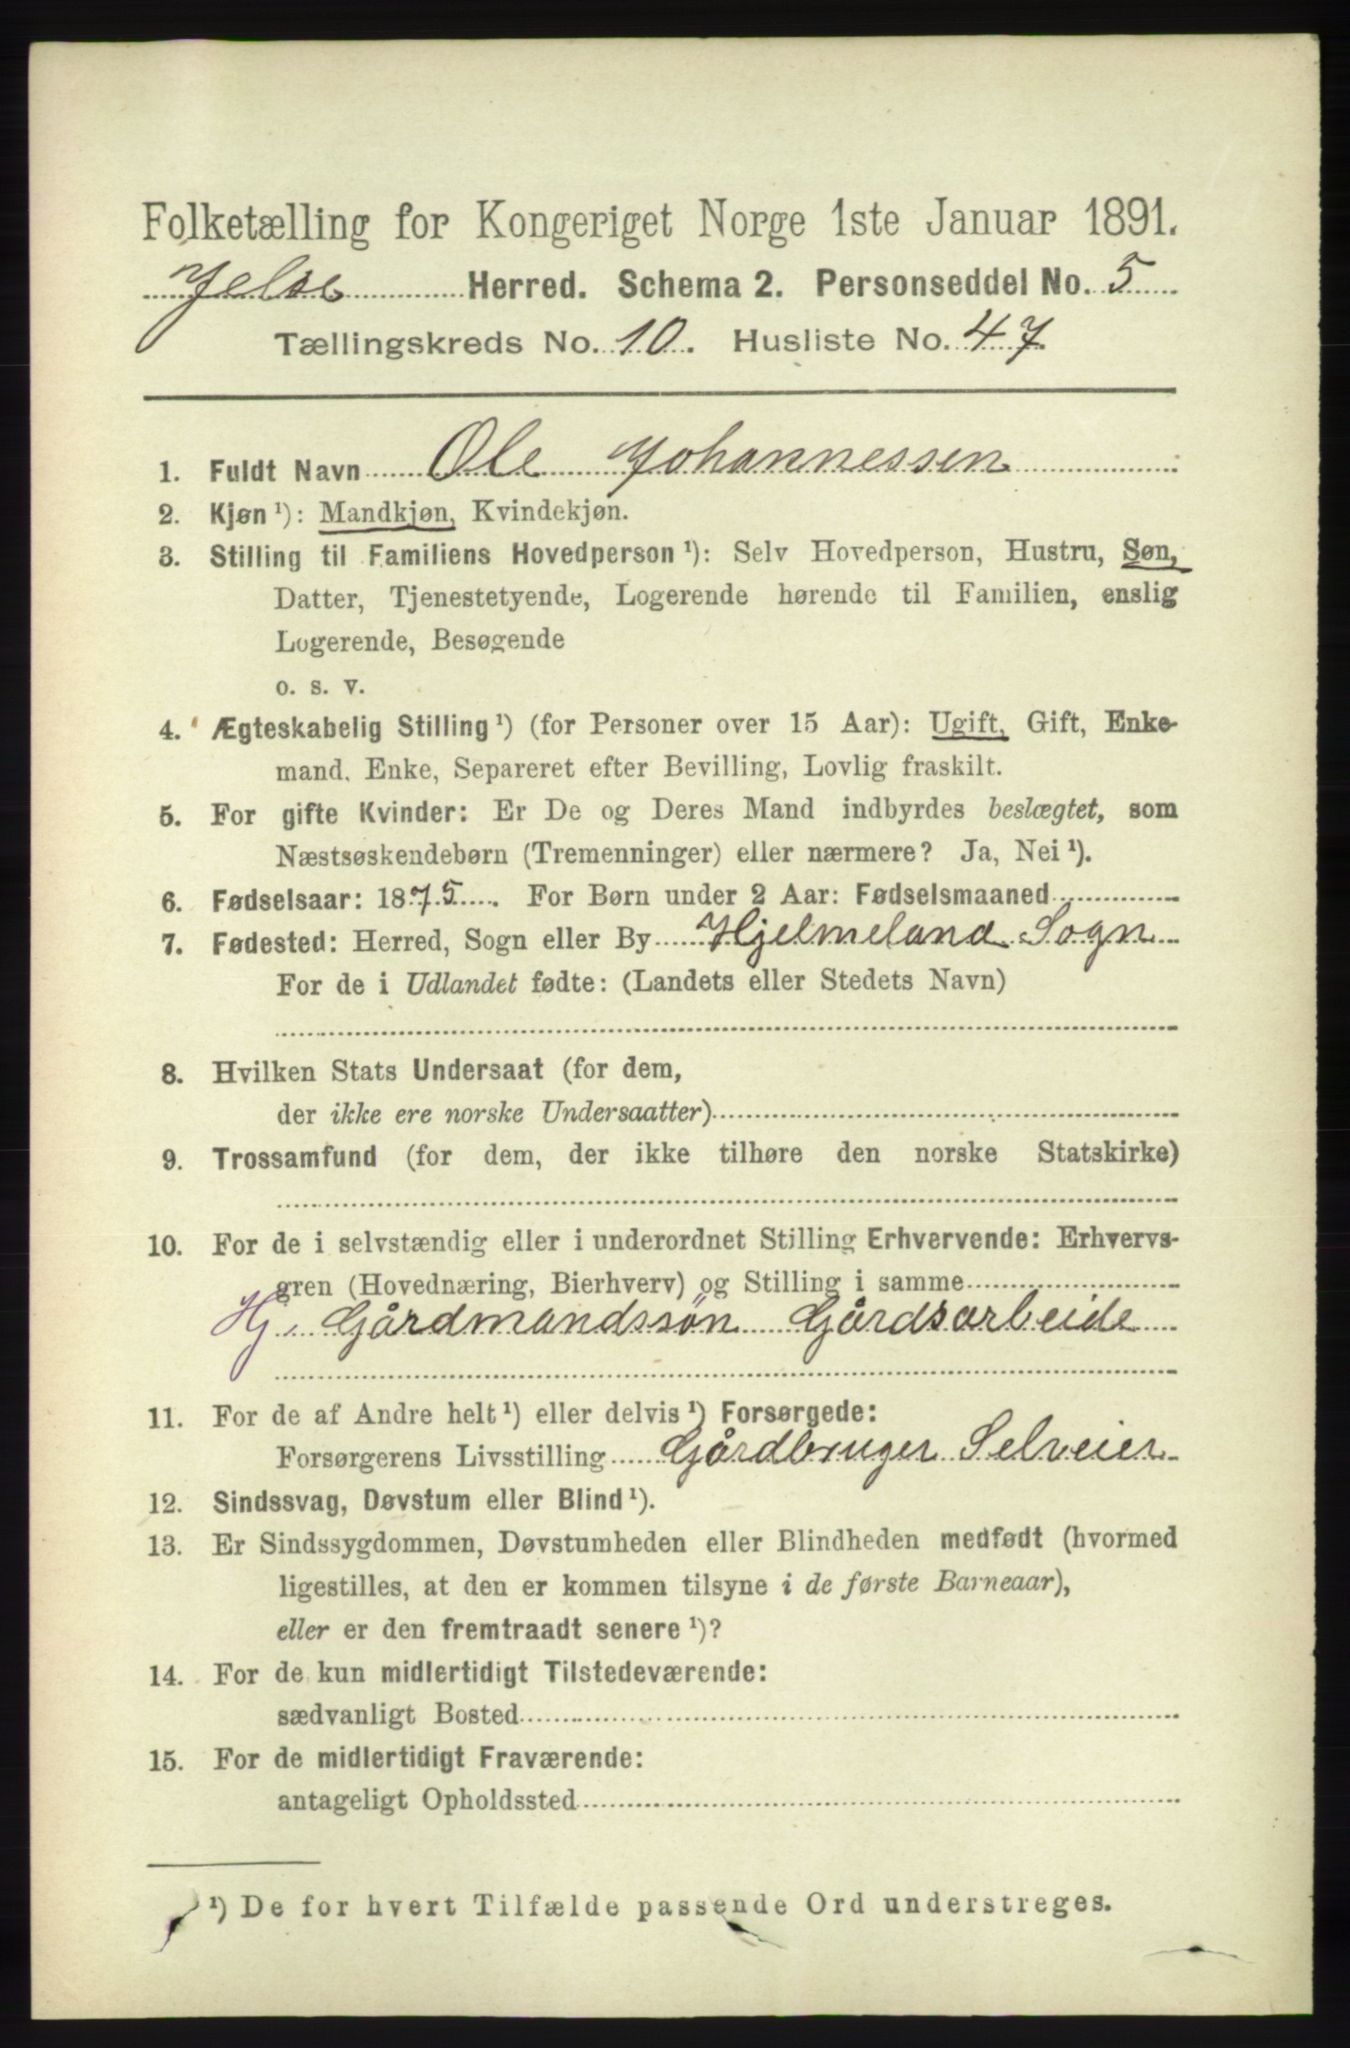 Folketælling for Kongeriget Norge 1ste Januar 1891.
Jelse Herred. Schema 2. Personseddel No. 5
Tællingskreds No. 10. Husliste No. 47
1. Fuldt Navn Ole Johannessen
2. Kjøn ¹): Mandkjøn, Kvindekjøn.
3. Stilling til Familiens Hovedperson ¹): Selv Hovedperson, Hustru, Søn,
Datter, Tjenestetyende, Logerende hørende til Familien, enslig
Logerende, Besøgende
o. s. v.
4. Ægteskabelig Stilling ¹) (for Personer over 15 Aar): Ugift, Gift, Enke-
mand, Enke, Separeret efter Bevilling, Lovlig fraskilt.
5. For gifte Kvinder: Er De og Deres Mand indbyrdes beslægtet, som
Næstsøskendebørn (Tremenninger) eller nærmere? Ja, Nei ¹).
6. Fødselsaar: 1875. For Børn under 2 Aar: Fødselsmaaned
7. Fødested: Herred, Sogn eller By Hjelmeland Sogn
For de i Udlandet fødte: (Landets eller Stedets Navn)
8. Hvilken Stats Undersaat (for dem,
der ikke ere norske Undersaatter)
9. Trossamfund (for dem, der ikke tilhøre den norske Statskirke)
10. For de i selvstændig eller i underordnet Stilling Erhvervende: Erhvervs-
gren (Hovednæring, Bierhverv) og Stilling i samme
Hj. Gårdmandssøn Gårdsarbeide
11. For de af Andre helt ¹) eller delvis ¹) Forsørgede:
Forsørgerens Livsstilling Gårdbruger Selveier
12. Sindssvag, Døvstum eller Blind ¹).
13. Er Sindssygdommen, Døvstumheden eller Blindheden medfødt (hvormed
ligestilles, at den er kommen tilsyne i de første Barneaar),
eller er den fremtraadt senere ¹)?
14. For de kun midlertidigt Tilstedeværende:
sædvanligt Bosted
15. For de midlertidigt Fraværende:
antageligt Opholdssted
¹) De for hvert Tilfælde passende Ord understreges.